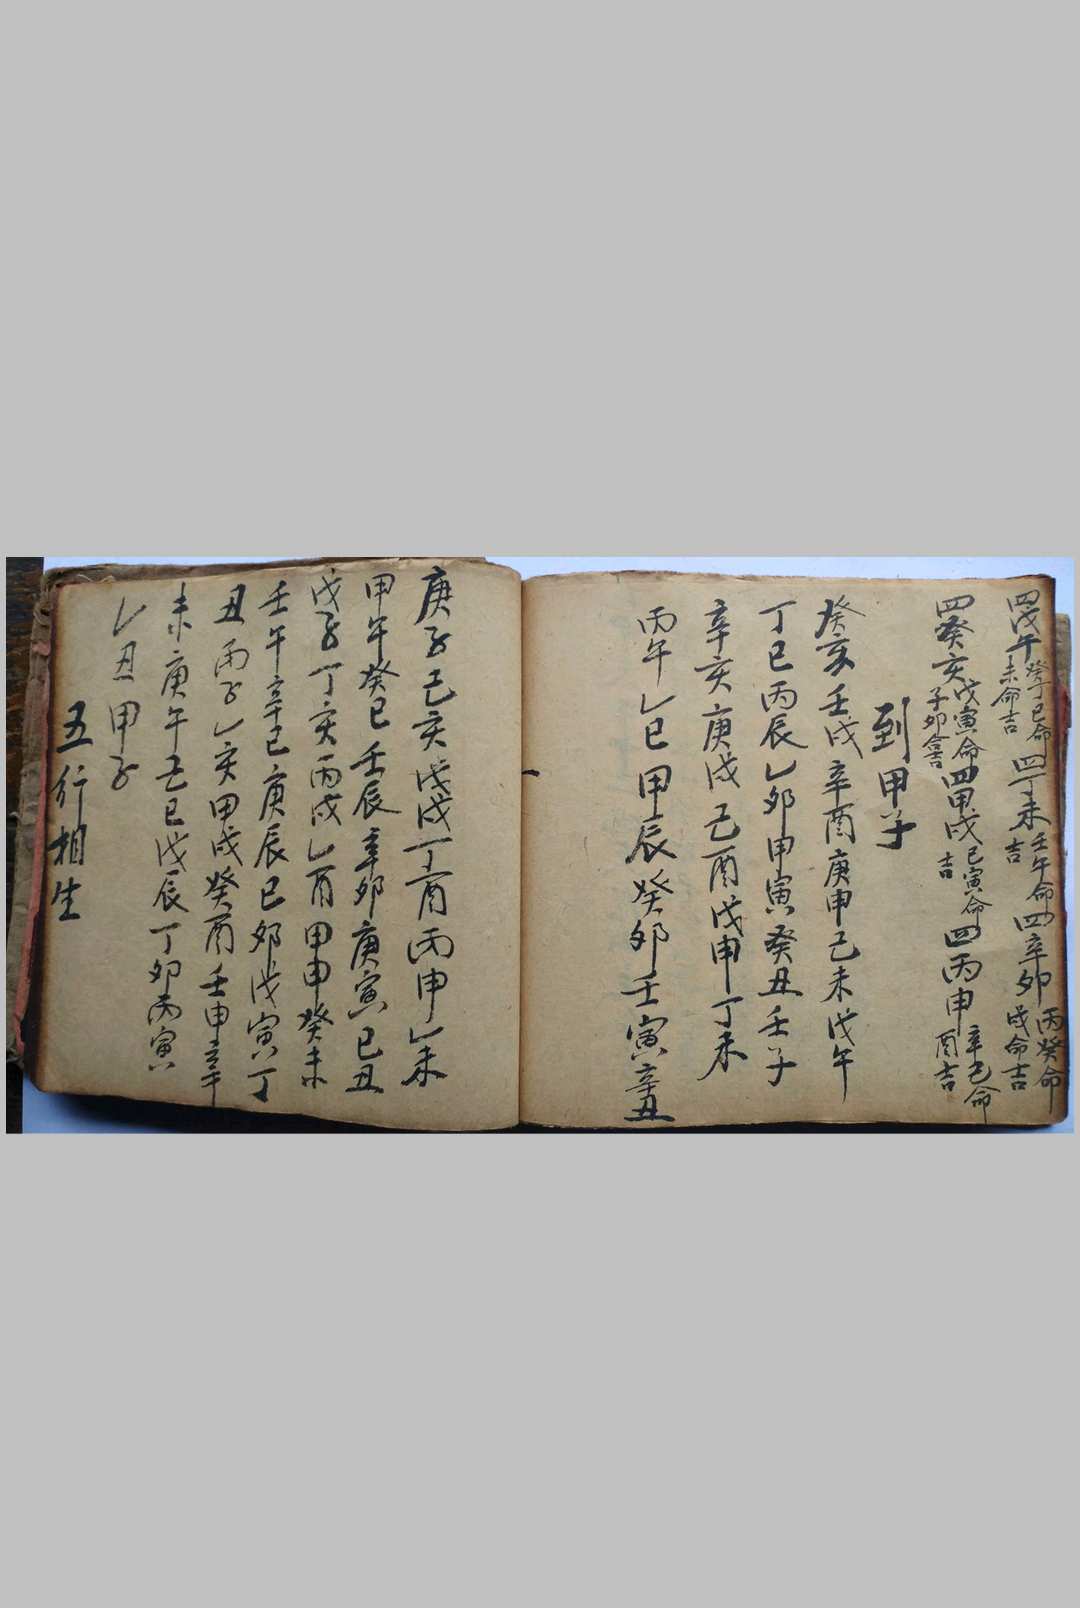 四戊午癸丁巳命未命吉四丁未壬午命吉四辛卯丙癸命戌命吉
四癸亥戊寅命子卯命吉四甲戌己寅命吉四丙申辛巳命酉吉
到甲子
癸亥壬戌辛酉庚申己未戊午
丁巳丙辰乙卯甲寅癸丑壬子
辛亥庚戌己酉戊申丁未
丙午乙巳甲辰癸卯壬寅辛丑
庚子己亥戊戌丁酉丙申乙未
甲午癸巳壬辰辛卯庚寅己丑
戊子丁亥丙戌乙酉甲申癸未
壬午辛巳庚辰己卯戊寅丁
丑丙子乙亥甲戌癸酉壬申辛
未庚午己巳戊辰丁卯丙寅
乙丑甲子
五行相生